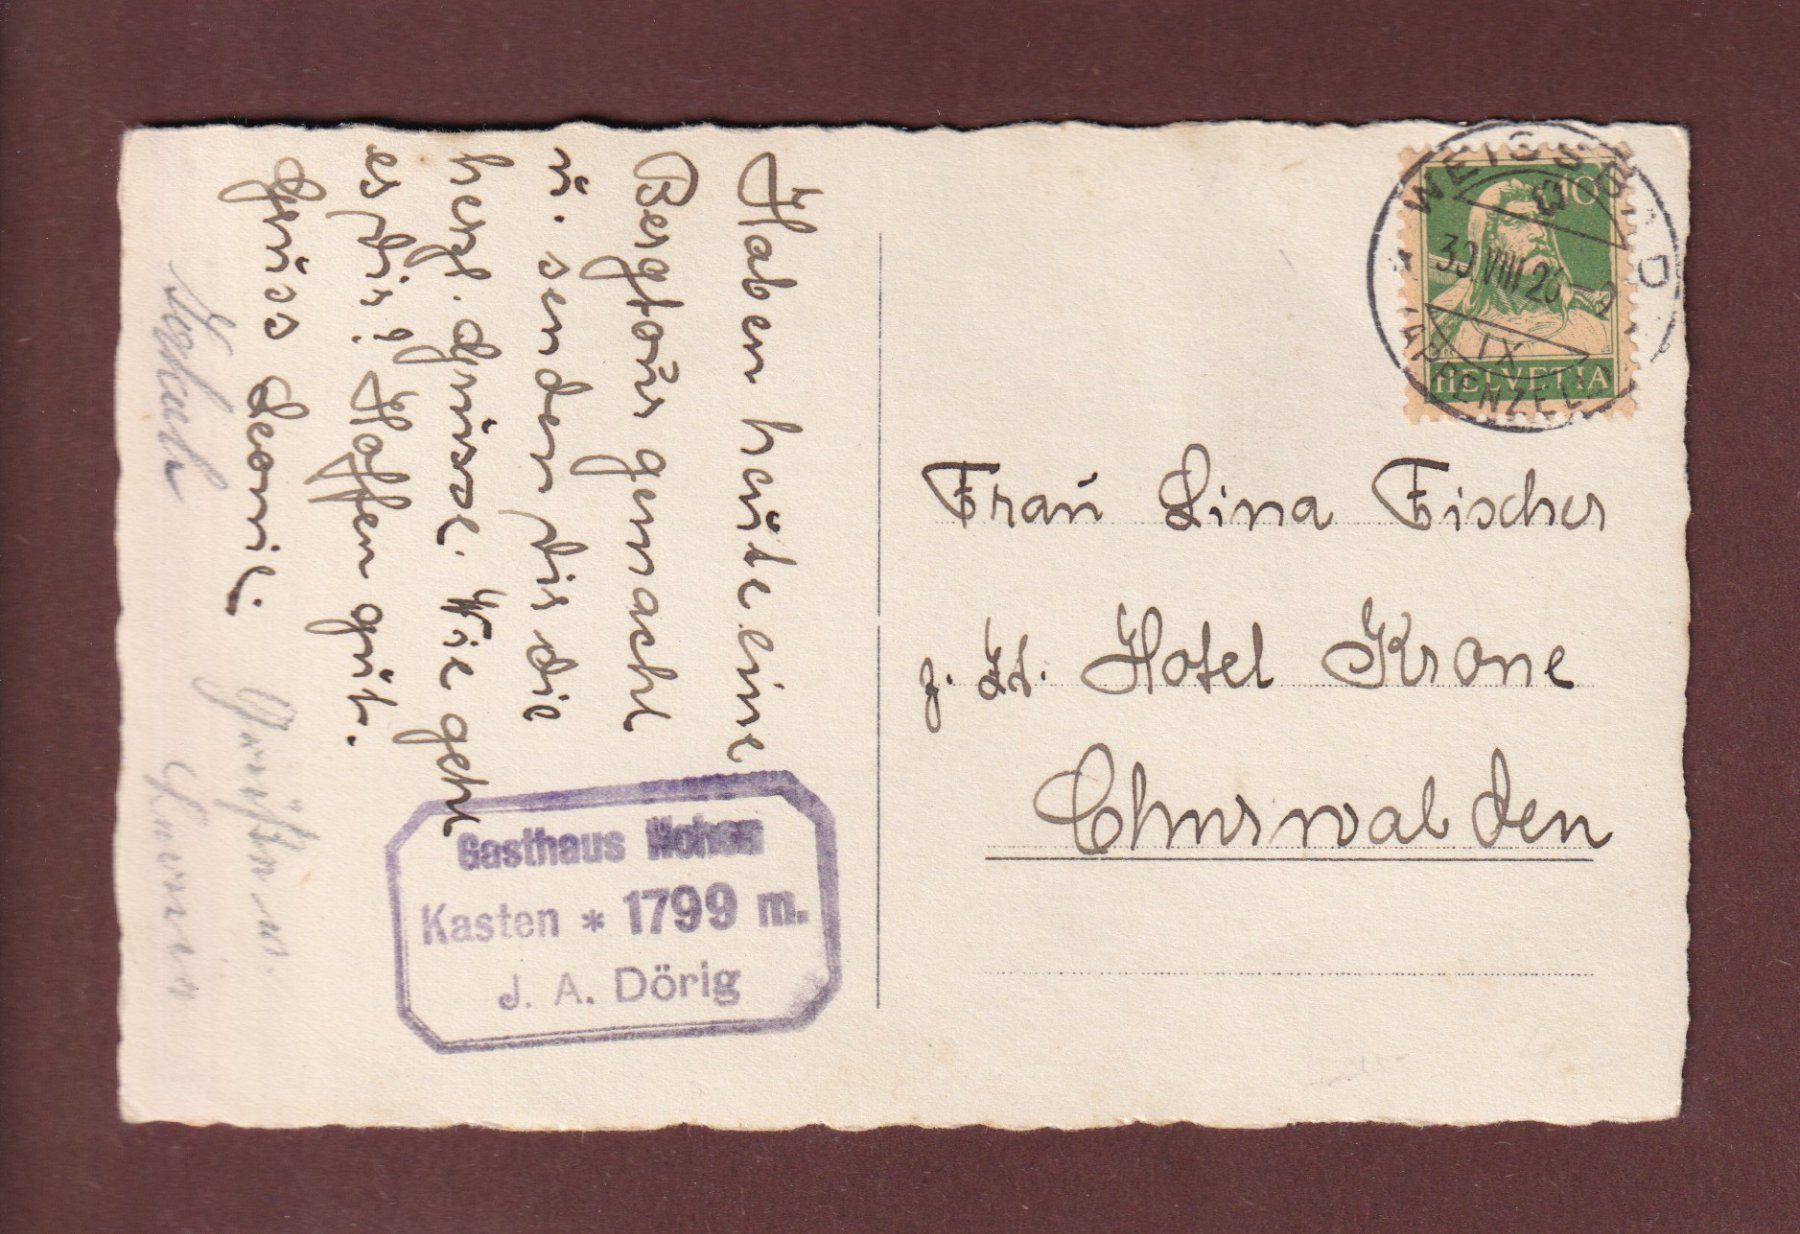 Haben heute eine
Bergtour gemacht
u. senden dir die
herzl. Grüsse. Wie geht
es dir? Hoffen gut.
Gruss Leonie.
Gasthaus Hohen
Kasten * 1799 m.
J. A. Dörig
WEISSBAD
30.VIII.26
IX
(APPENZELL)
10
HELVETIA
Frau Lina Fischer
z. Zt. Hotel Krone
Churwalden